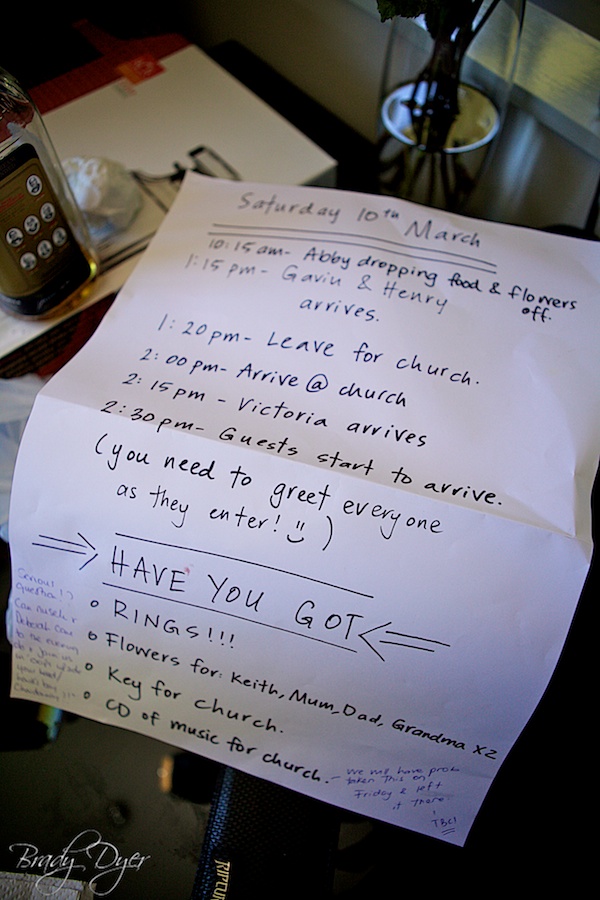 Saturday 10th March
10:15am- Abby dropping food & flowers off.
1:15pm- Gavin & Henry
arrives.
1:20pm- Leave for church.
2:00pm- Arrive @ church
2:15pm - Victoria arrives
2:30pm- Guests start to arrive.
(you need to greet everyone
as they enter! )
HAVE YOU GOT
RINGS!!!
Flowers for: Keith, Mum, Dad, Grandma x2
Key for church.
CD of music for church.
We will have
taken this on
Friday & left
it there
TBC!
Serious
question!
Can
Deborah come
to the evening
join us
RIPCUR
Brady Dyer